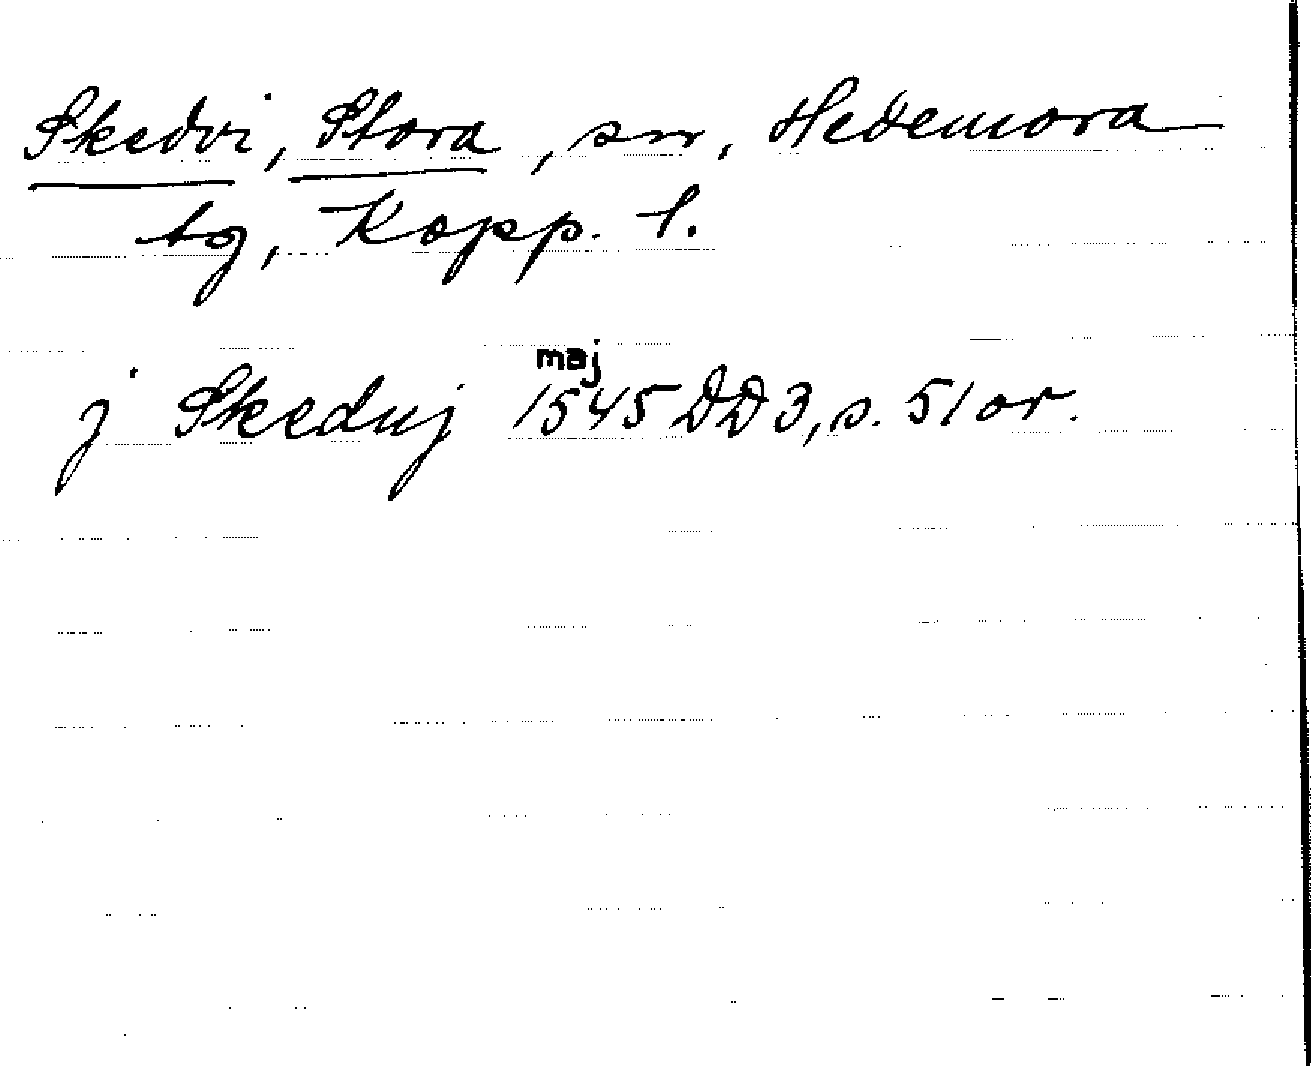 Skedvi, Stora, sn, Hedemora
tg, Kopp. l.
maj
j Skeduj 1545 DD 3, s. 51 or.